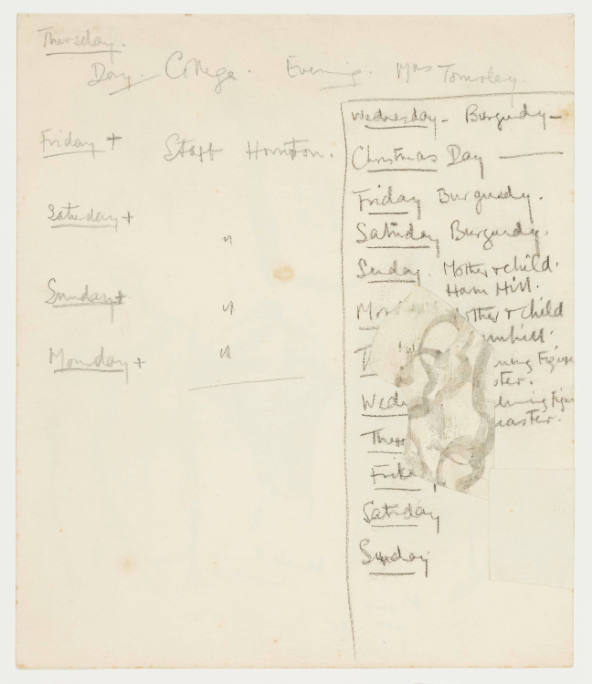 Thursday.
Day. College. Evening. Mrs
Friday + Staff Hornton.
Saturday + "
Sunday + "
Monday + "
Wednesday - Burgundy -
Christmas Day
Friday Burgundy.
Saturday Burgundy.
Sunday. Mother & child.
Ham Hill.
Mother & child
Figure
Figure
Friday
Saturday
Sunday